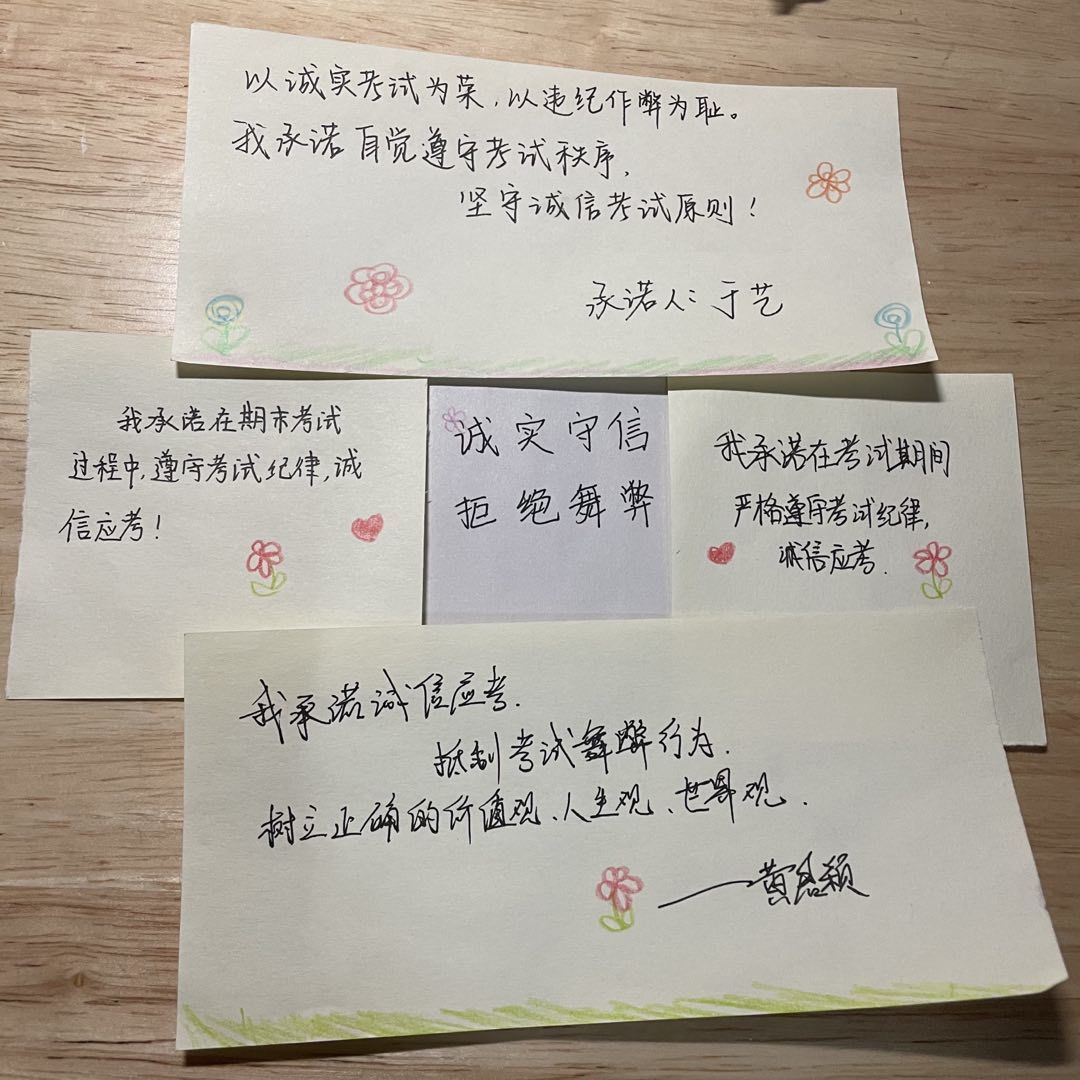 以诚实考试为荣，以违纪作弊为耻。
我承诺自觉遵守考试秩序，
坚守诚信考试原则！
承诺人：于艺
我承诺在期末考试
过程中，遵守考试纪律，诚
信应考！
诚实守信
拒绝舞弊
我承诺在考试期间
严格遵守考试纪律，
诚信应考．
我承诺诚信应考．
抵制考试舞弊行为．
树立正确的价值观、人生观、世界观．
——黄启颖